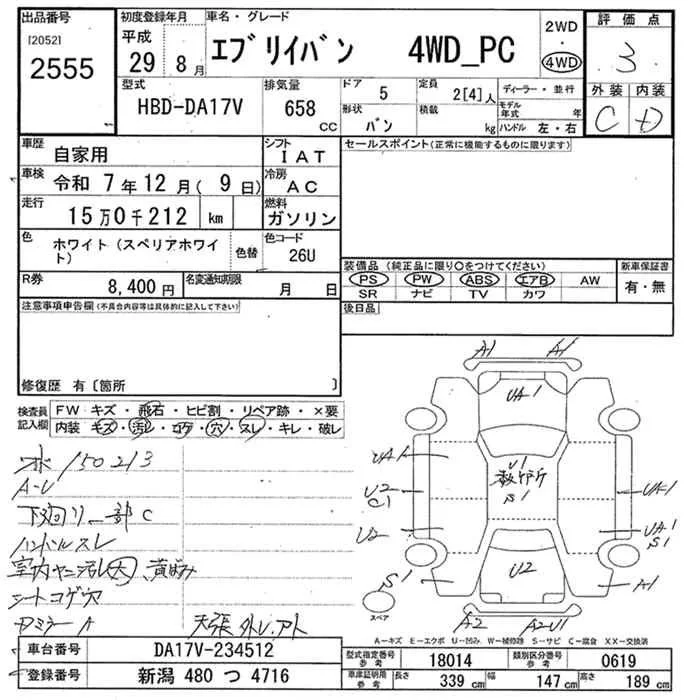 出品番号
[2052]
2555
初度登録年月
平成
29 8月
車名・グレード
エブリイバン 4WD_PC
2WD
・
4WD
評価点
3
外装 内装
C D
型式
HBD-DA17V
排気量
658
CC
ドア
5
形状
バン
定員
2[4]人
積載
kg
ディーラー・並行
モデル年式 年
ハンドル 左・右
車歴
自家用
シフト
IAT
車検
令和 7年12月( 9日)
冷房
AC
走行
15万0千212 km
燃料
ガソリン
色
ホワイト(スペリアホワイト)
色替
色コード
26U
R券
8,400円
名変通知期限
月 日
セールスポイント(正常に機能するものに限ります)
装備品(純正品に限り○をつけてください)
PS PW ABS エアB AW
SR ナビ TV カワ
新車保証書
有・無
後日品
注意事項申告欄(不具合内容等は具体的に記入して下さい)
修復歴 有〔箇所 〕
検査員
記入欄
FW キズ・飛石・ヒビ割・リペア跡・×要
内装 キズ・汚レ・コゲ・穴・スレ・キレ・破レ
150213
A-U
下廻リ一部C
ハンドルスレ
室内ヤニ汚レ大 黄ばみ
シートコゲ穴
天張外レ、アト
A1 A1
UA1
UA1
U2
C1
U2
U1
数ヶ所
S1
UA1
UA1
S1
U2
S1
A1
A2 A2U1
スペア
A－キズ E－エクボ U－凹み W－補修跡 S－サビ C－腐食 XX－交換済
車台番号
DA17V-234512
登録番号
新潟 480 つ 4716
型式指定番号
参考
18014
類別区分番号
参考
0619
車庫証明用
参考
長さ 339 cm 幅 147 cm 高さ 189 cm